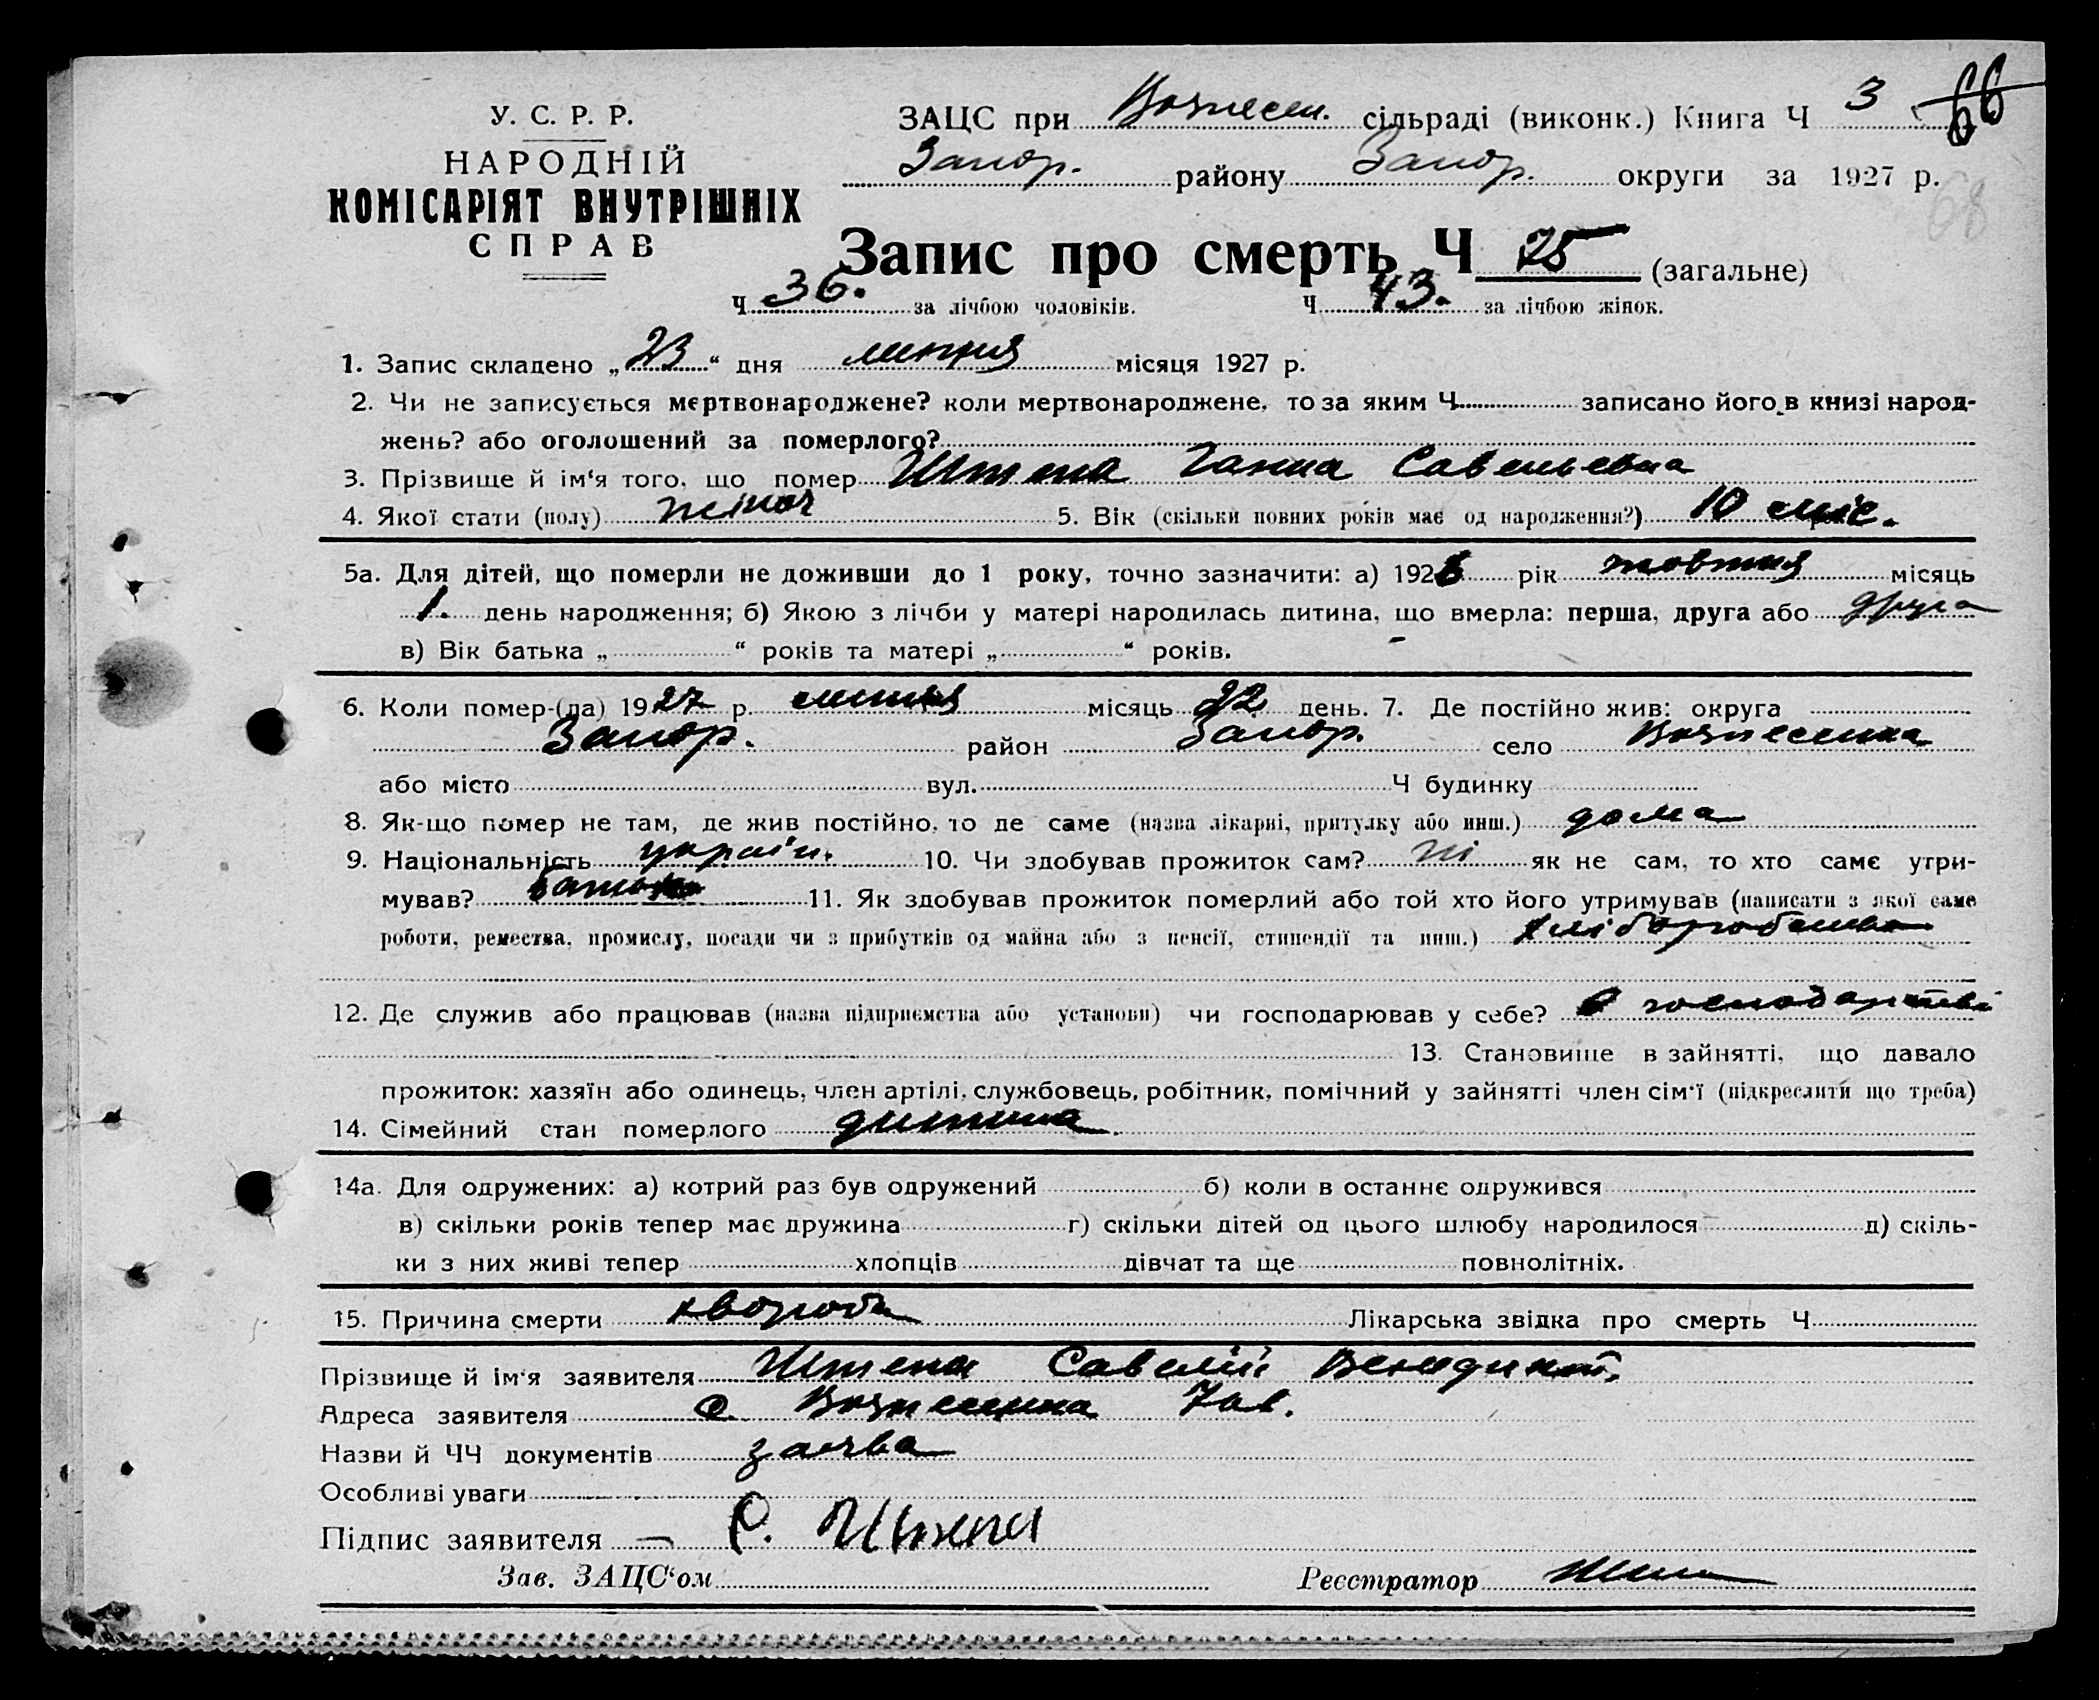 У. С. Р. Р.
НАРОДНІЙ
КОМІСАРІЯТ ВНУТРІШНІХ
СПРАВ
ЗАЦС при Вознесен. сільраді (виконк.) Книга Ч 3 66
Запор. району Запор. округи за 1927 р.
68
Запис про смерть Ч 75 (загальне)
Ч 36. за лічбою чоловіків. Ч 43. за лічбою жінок.
1. Запис складено „23“ дня липня місяця 1927 р.
2. Чи не записується мертвонароджене? коли мертвонароджене, то за яким Ч записано його в книзі народ-
жень? або оголошений за померлого?
3. Прізвище й ім‘я того, що помер Штепа Ганна Савельевна
4. Якої стати (полу) жіноч 5. Вік (скільки повних років має од народження?) 10 міс.
5а. Для дітей, що померли не доживши до 1 року, точно зазначити: а) 1926 рік жовтня місяць
1. день народження; б) Якою з лічби у матері народилась дитина, що вмерла: перша, друга або друга
в) Вік батька „ “ років та матері „ “ років.
6. Коли помер-(ла) 1927 р. липня місяць 22 день. 7. Де постійно жив: округа
Запор. район Запор. село Вознесенка
або місто вул. Ч будинку
8. Як-що помер не там, де жив постійно, то де саме (назва лікарні, притулку або инш.) дома
9. Національність україн. 10. Чи здобував прожиток сам? ні як не сам, то хто саме утри-
мував? батько 11. Як здобував прожиток померлий або той хто його утримував (написати з якої саме
роботи, ремества, промислу, посади чи з прибутків од майна або з пенсії, стипендії та инш.) хліборобство
12. Де служив або працював (назва підприємства або установи) чи господарював у себе? в господарстві
13. Становище в зайнятті, що давало
прожиток: хазяїн або одинець, член артілі, службовець, робітник, помічний у зайнятті член сім‘ї (підкреслити що треба)
14. Сімейний стан померлого дитина
14а. Для одружених: а) котрий раз був одружений б) коли в останнє одружився
в) скільки років тепер має дружина г) скільки дітей од цього шлюбу народилося д) скіль-
ки з них живі тепер хлопців дівчат та ще повнолітніх.
15. Причина смерти хвороба Лікарська звідка про смерть Ч
Прізвище й ім‘я заявителя Штепа Савелій Венедикт.
Адреса заявителя с. Вознесенка
Назви й ЧЧ документів заява
Особливі уваги
Підпис заявителя С. Штепа
Зав. ЗАЦС‘ом Реєстратор